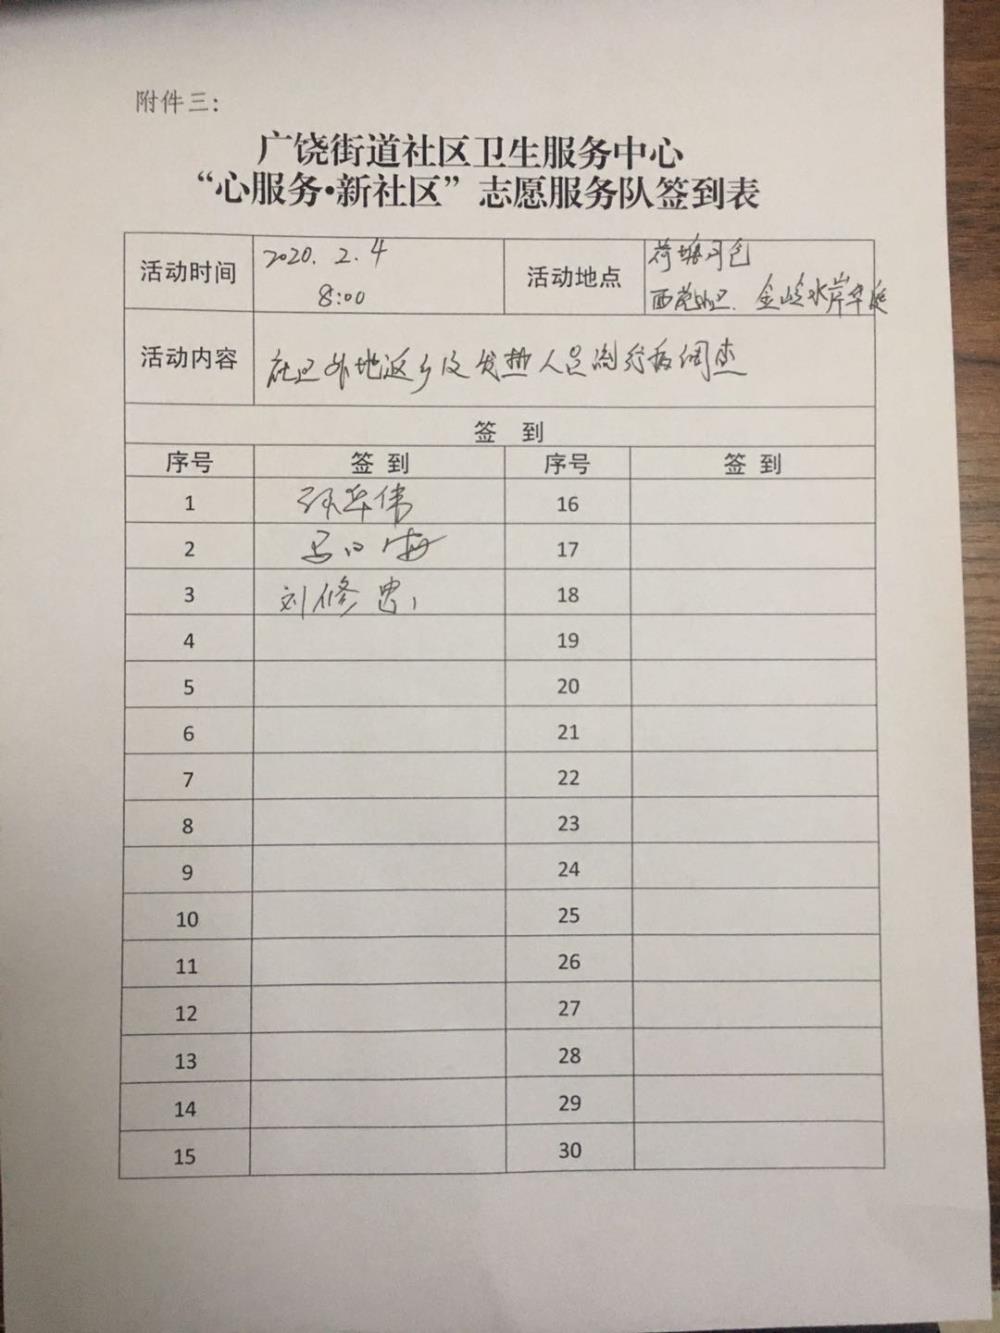 附件三：
广饶街道社区卫生服务中心
“心服务•新社区”志愿服务队签到表
活动时间 2020.2.4 活动地点 荷塘月色
8:00 西苑社区、金岭水岸华庭
活动内容 社区外地返乡及发热人员流行病调查
签 到
序号 签 到 序号 签 到
1 华伟 16
2 马 海 17
3 刘修忠 18
4 19
5 20
6 21
7 22
8 23
9 24
10 25
11 26
12 27
13 28
14 29
15 30